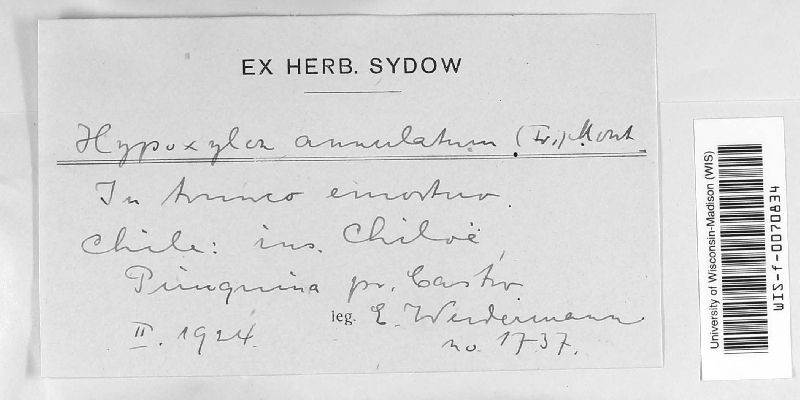 EX HERB. SYDOW
Hypoxylon annulatum (Fr.) Mont.
In trunco emortuo.
Chile: ins. Chiloë,
pr. Castro
leg. E. Werdermann
II. 1924. no. 1737.
University of Wisconsin-Madison (WIS)
WIS-f-0070834